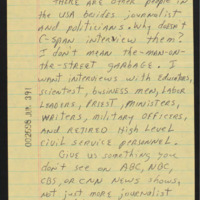 THERE ARE OTHER PEOPLE IN
THE USA BESIDES JOURNALIST
AND POLITICIANS. WHY DOESN'T
C-SPAN INTERVIEW THEM?
I DON'T MEAN THE-MAN-ON-
THE-STREET GARBAGE. I
WANT INTERVIEWS WITH EDUCATORS,
SCIENTIST, BUSINESS MEN, LABOR
LEADERS, PRIEST, MINISTERS,
WRITERS, MILITARY OFFICERS,
AND RETIRED HIGH LEVEL
CIVIL SERVICE PERSONNEL.
GIVE US SOMETHING YOU
DON'T SEE ON ABC, NBC,
CBS, OR CNN NEWS SHOWS,
NOT JUST MORE JOURNALIST